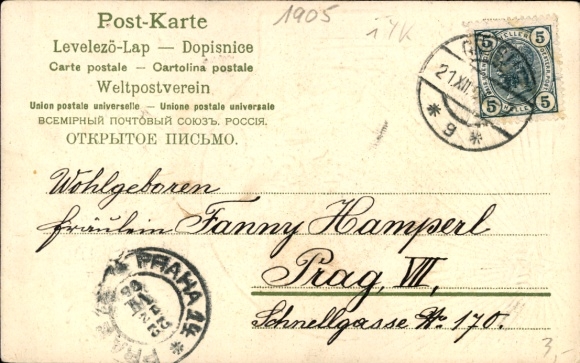 Post-Karte
1905
Levelező-Lap — Dopisnice
Carte postale — Cartolina postale
Weltpostverein
Union postale universelle — Unione postale universale
ВСЕМІРНЫЙ ПОЧТОВЫЙ СОЮЗЪ. РОССІЯ.
ОТКРЫТОЕ ПИСЬМО.
5 HELLER 5
5 5
21 XII
* 9 *
Wohlgeboren
Fräulein Fanny Hamperl
Prag, VII,
Schnellgasse No 170.
PRAHA 14 *
3,-